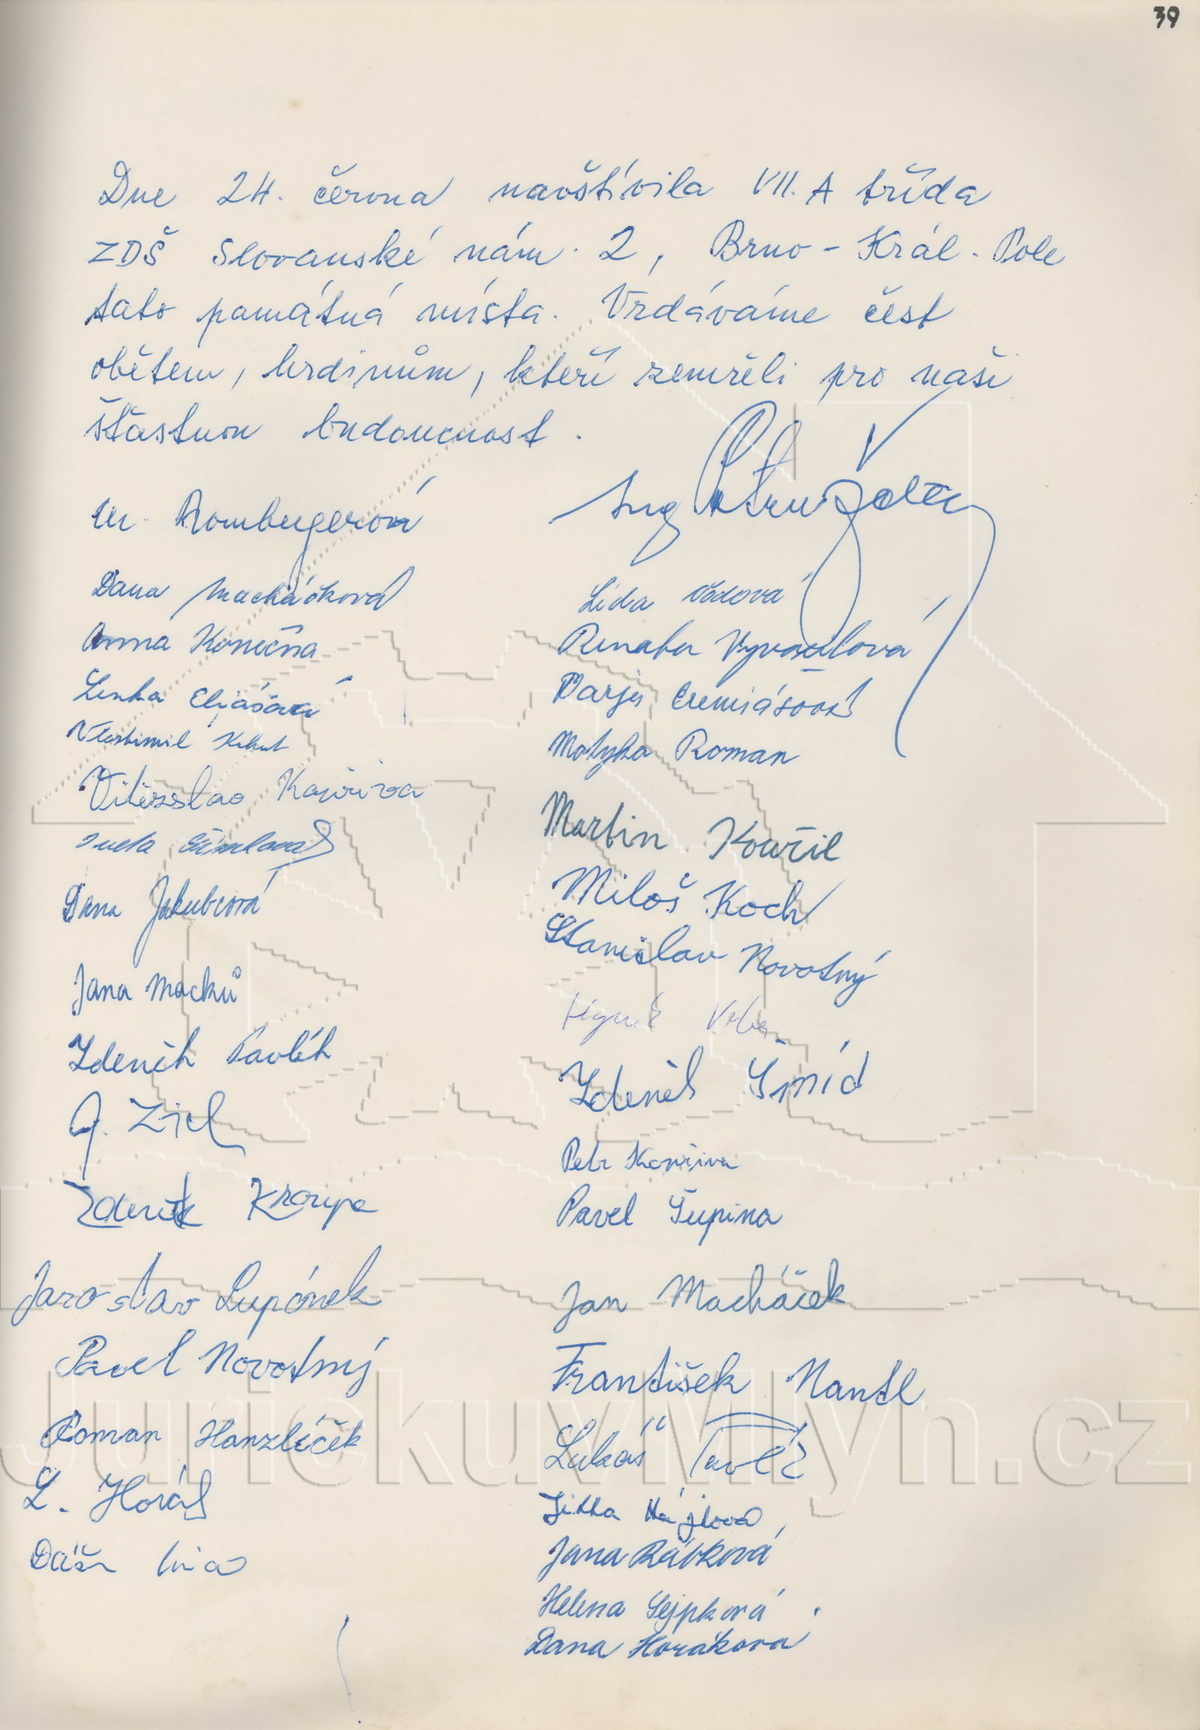 39
Dne 24. června navštívila VII. A třída
ZDŠ Slovanské nám. 2, Brno - Král. Pole
tato památná místa. Vzdáváme čest
obětem, hrdinům, kteří zemřeli pro naši
šťastnou budoucnost.
M. Rombergerová
Ing
Dana Macháčková
Anna Konečná
Lenka Eliášová
Vlastimil
Vítězslav Kavřiva
Iveta
Dana Jakubcová
Jana Macků
Zdeněk Pavlík
Zdeněk Kroupa
Jaroslav Lupínek
Pavel Novotný
Roman Hanzlíček
L. Horák
Lida Vodová
Renata Vyvozilová
Darja
Matyka Roman
Martin Kouřil
Miloš Koch
Stanislav Novotný
Hynek
Zdeněk Šmíd
Petr Kavřiva
Pavel Šupina
Jan Macháček
František Mantl
Lukáš
Jitka Hájková
Jana Rábková
Helena Sejpková
Dana Horáková
Jurickuvmlyn.cz